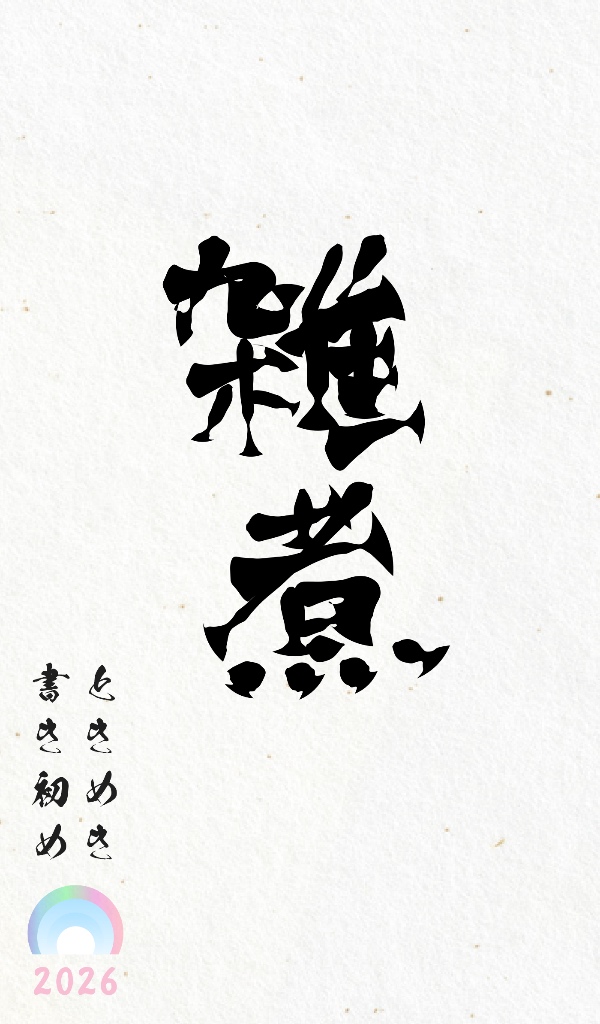 雑煮
ときめき
書き初め
2026